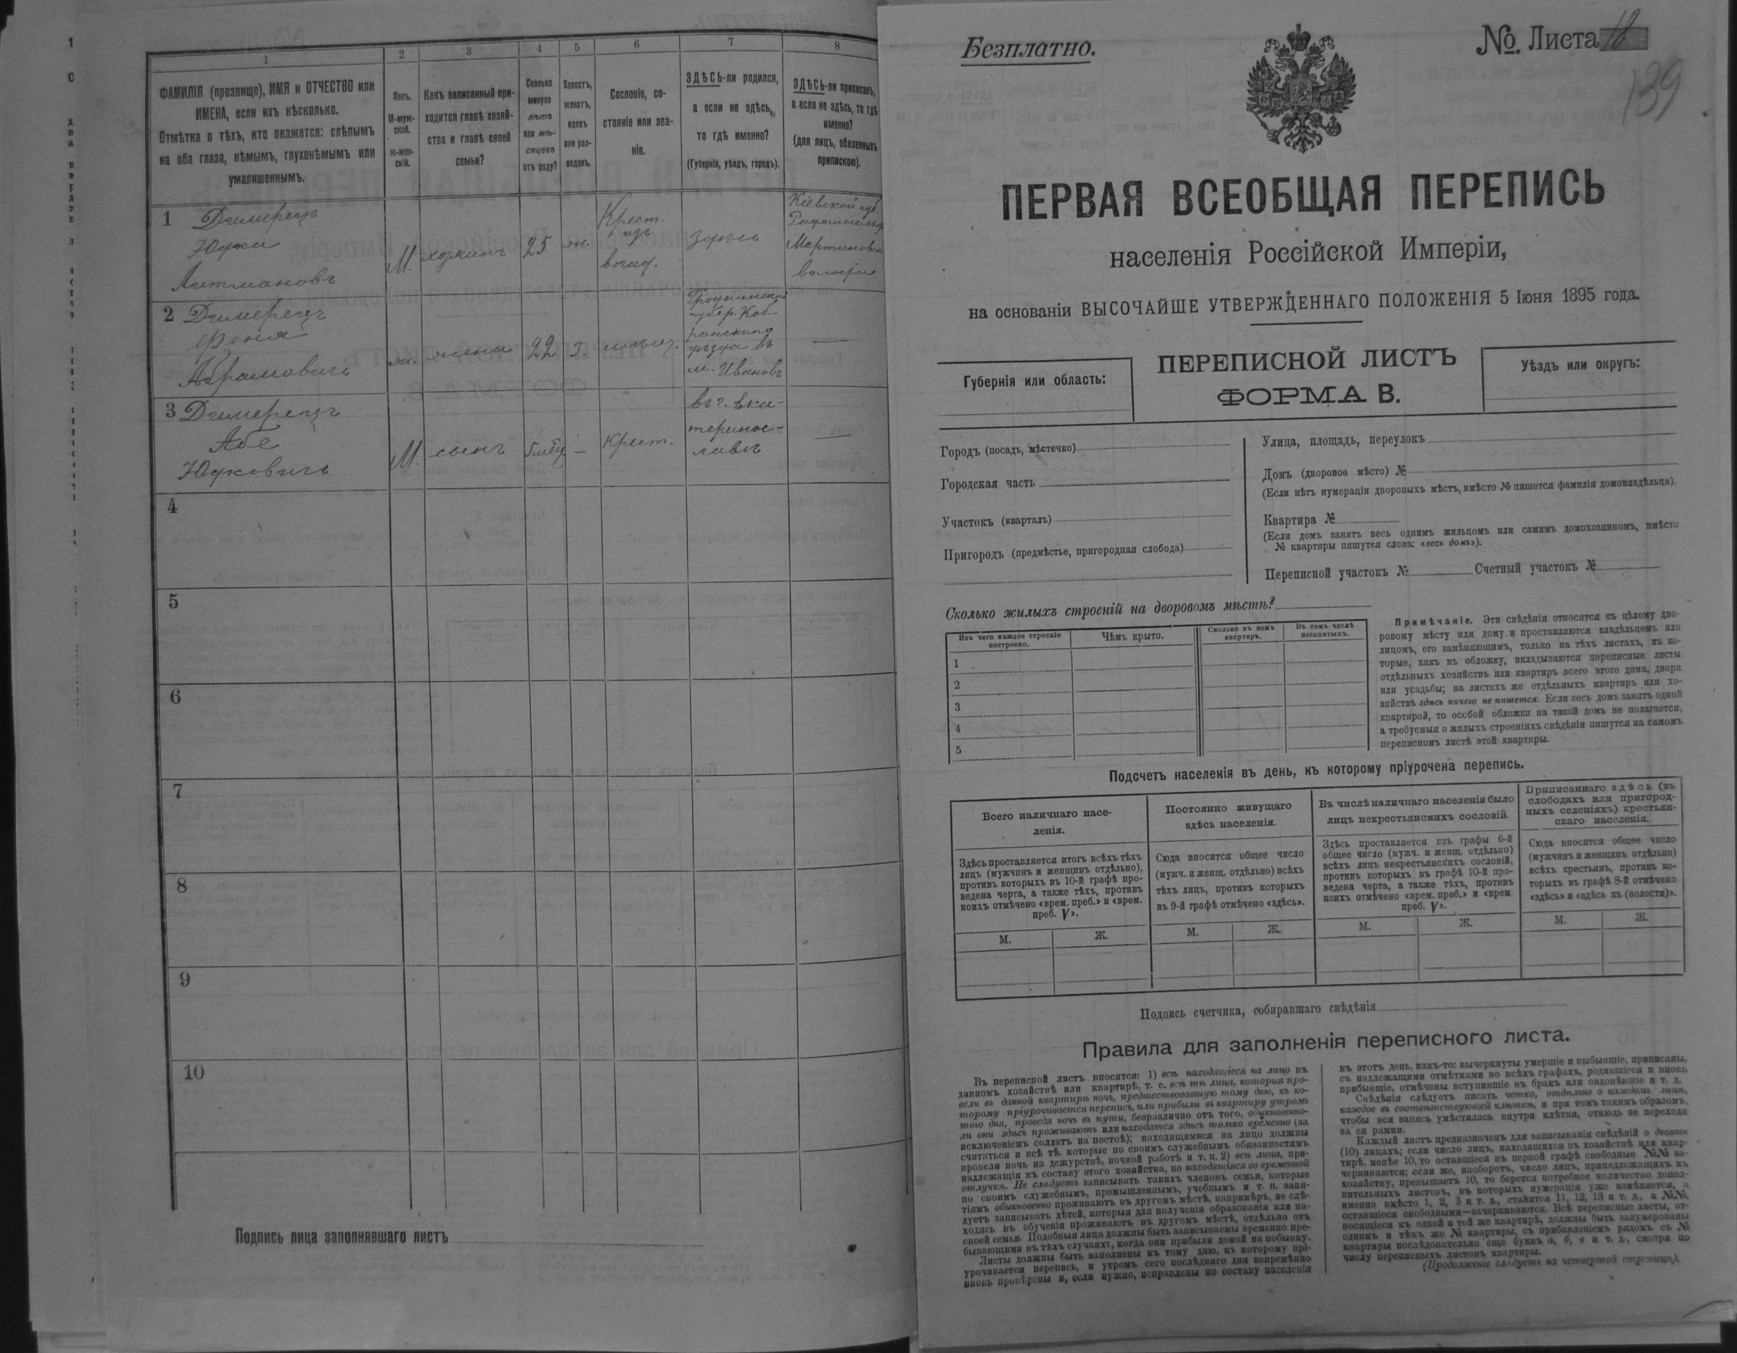 1 2 3 4 5 6 7 8
ФАМИЛІЯ (прозвище), ИМЯ и ОТЧЕСТВО или
ИМЕНА, если ихъ нѣсколько.
Отмѣтка о тѣхъ, кто окажется: слѣпымъ
на оба глаза, нѣмымъ, глухонѣмымъ или
умалишеннымъ.
Полъ.
М-муж-
ской.
ж-жен-
скій.
Какъ записанный при-
ходится главѣ хозяй-
ства и главѣ своей
семьи?
Сколько
минуло
лѣтъ
или мѣ-
сяцевъ
отъ роду?
Холостъ,
женатъ,
вдовъ
или раз-
веденъ.
Сословіе, со-
стояніе или зва-
ніе.
ЗДѢСЬ-ли родился,
а если не здѣсь,
то гдѣ именно?
(Губернія, уѣздъ, городъ).
ЗДѢСЬ-ли приписанъ,
а если не здѣсь, то гдѣ
именно?
(для лицъ, обязанныхъ
припискою).
1 Димерецъ
Юдка
М. хозяинъ 25 ж.
Крест.
изъ
здѣсь
Кіевской губ.
волости
2 Димерецъ
Абрамовичъ
ж. жена 22 з.
губер. Коб
уѣзда въ
м. Ивановъ
—
3 Димерецъ
Абе
Юдковичъ
М. сынъ — Крест.
въ г. Ека-
теринос-
лавъ
—
4
5
6
7
8
9
10
Подпись лица заполнявшаго листъ
Безплатно.
№ Листа 18
139
ПЕРВАЯ ВСЕОБЩАЯ ПЕРЕПИСЬ
населенія Россійской Имперіи,
на основаніи ВЫСОЧАЙШЕ УТВЕРЖДЕННАГО ПОЛОЖЕНІЯ 5 Іюня 1895 года.
Губернія или область:
ПЕРЕПИСНОЙ ЛИСТЪ
ФОРМА В.
Уѣздъ или округъ:
Городъ (посадъ, мѣстечко)
Городская часть
Участокъ (кварталъ)
Пригородъ (предмѣстье, пригородная слобода)
Улица, площадь, переулокъ
Домъ (дворовое мѣсто) №
(Если нѣтъ нумераціи дворовыхъ мѣстъ, вмѣсто № пишется фамилія домовладѣльца).
Квартира №
(Если домъ занятъ весь однимъ жильцомъ или самимъ домохозяиномъ, вмѣсто
№ квартиры пишутся слова: «весь домъ»).
Переписной участокъ № Счетный участокъ №
Сколько жилыхъ строеній на дворовомъ мѣстѣ?
Изъ чего каждое строеніе
построено.
Чѣмъ крыто.
Сколько въ немъ
квартиръ.
Въ томъ числѣ
незанятыхъ.
1
2
3
4
5
Примѣчаніе. Эти свѣдѣнія относятся къ цѣлому дво-
ровому мѣсту или дому и проставляются владѣльцемъ или
лицомъ, его замѣняющимъ, только на тѣхъ листахъ, въ ко-
торые, какъ въ обложку, вкладываются переписные листы
отдѣльныхъ хозяйствъ или квартиръ всего этого дома, двора
или усадьбы; на листахъ же отдѣльныхъ квартиръ или хо-
зяйствъ здѣсь ничего не пишется. Если весь домъ занятъ одной
квартирой, то особой обложки на такой домъ не полагается,
а требуемыя о жилыхъ строеніяхъ свѣдѣнія пишутся на самомъ
переписномъ листѣ этой квартиры.
Подсчетъ населенія въ день, къ которому пріурочена перепись.
Всего наличнаго насе-
ленія.
Постоянно живущаго
здѣсь населенія.
Въ числѣ наличнаго населенія было
лицъ некрестьянскихъ сословій.
Приписаннаго здѣсь (въ
слободахъ или пригород-
ныхъ селеніяхъ) крестьян-
скаго населенія.
Здѣсь проставляется итогъ всѣхъ тѣхъ
лицъ (мужчинъ и женщинъ отдѣльно),
противъ которыхъ въ 10-й графѣ про-
ведена черта, а также тѣхъ, противъ
коихъ отмѣчено «врем. преб.» и «врем.
преб. V».
Сюда вносится общее число
(мужч. и женщ. отдѣльно) всѣхъ
тѣхъ лицъ, противъ которыхъ
въ 9-й графѣ отмѣчено «здѣсь».
Здѣсь проставляется изъ графы 6-й
общее число (мужч. и женщ. отдѣльно)
всѣхъ лицъ некрестьянскихъ сословій,
противъ которыхъ въ графѣ 10-й про-
ведена черта, а также тѣхъ, противъ
коихъ отмѣчено «врем. преб.» и «врем.
преб. V».
Сюда вносится общее число
(мужчинъ и женщинъ отдѣльно)
всѣхъ крестьянъ, противъ ко-
торыхъ въ графѣ 8-й отмѣчено
«здѣсь» и «здѣсь къ (волости)».
М. Ж. М. Ж. М. Ж. М. Ж.
Подпись счетчика, собиравшаго свѣдѣнія
Правила для заполненія переписного листа.
Въ переписной листъ вносятся: 1) всѣ находящіеся на лицо въ
данномъ хозяйствѣ или квартирѣ, т. е. всѣ тѣ лица, которыя про-
вели въ данной квартирѣ ночь, предшествовавшую тому дню, къ ко-
торому пріурочивается перепись, или прибыли въ квартиру утромъ
того дня, проведя ночь въ пути, безразлично отъ того, обыкновенно-
ли они здѣсь проживаютъ или находятся здѣсь только временно (за
исключеніемъ солдатъ на постоѣ); находящимися на лицо должны
считаться и всѣ тѣ, которые по своимъ служебнымъ обязанностямъ
провели ночь на дежурствѣ, ночной работѣ и т. п. 2) всѣ лица, при-
надлежащія къ составу этого хозяйства, но находящіяся во временной
отлучкѣ. Не слѣдуетъ записывать такихъ членовъ семьи, которые
по своимъ служебнымъ, промышленнымъ, учебнымъ и т. п. заня-
тіямъ обыкновенно проживаютъ въ другомъ мѣстѣ, напримѣръ, не слѣ-
дуетъ записывать дѣтей, которыя для полученія образованія или на-
ходясь въ обученіи проживаютъ въ другомъ мѣстѣ, отдѣльно отъ
своей семьи. Подобныя лица должны быть записываемы временно пре-
бывающими въ тѣхъ случаяхъ, когда они прибыли домой на побывку.
Листы должны быть заполнены къ тому дню, къ которому прі-
урочивается перепись, и утромъ сего послѣдняго дня непремѣнно
вновь провѣрены и, если нужно, исправлены по составу населенія
въ этотъ день, какъ-то: вычеркнуты умершіе и выбывшіе, приписаны,
съ надлежащими отмѣтками во всѣхъ графахъ, родившіеся и вновь
прибывшіе, отмѣчены вступившіе въ бракъ или овдовѣвшіе и т. д.
Свѣдѣнія слѣдуетъ писать четко, отдѣльно о каждомъ лицѣ,
каждое въ соотвѣтствующей клѣткѣ, и при томъ такимъ образомъ,
чтобы вся запись умѣстилась внутри клѣтки, отнюдь не переходя
за ея рамки.
Каждый листъ предназначенъ для записыванія свѣдѣній о десяти
(10) лицахъ; если число лицъ, находящихся въ хозяйствѣ или квар-
тирѣ, менѣе 10, то оставшіеся въ первой графѣ свободные №№ за-
черкиваются; если же, наоборотъ, число лицъ, принадлежащихъ къ
хозяйству, превышаетъ 10, то берется потребное количество допол-
нительныхъ листовъ, въ которыхъ нумерація уже измѣняется, а
именно вмѣсто 1, 2, 3 и т. д., ставится 11, 12, 13 и т. д., а №№,
оставшіеся свободными—зачеркиваются. Всѣ переписные листы, от-
носящіеся къ одной и той же квартирѣ, должны быть занумерованы
однимъ и тѣмъ же № квартиры, съ прибавленіемъ рядомъ съ №
квартиры послѣдовательно еще буквъ а, б, в и т. д., смотря по
числу переписныхъ листовъ квартиры.
(Продолженіе слѣдуетъ на четвертой страницѣ).